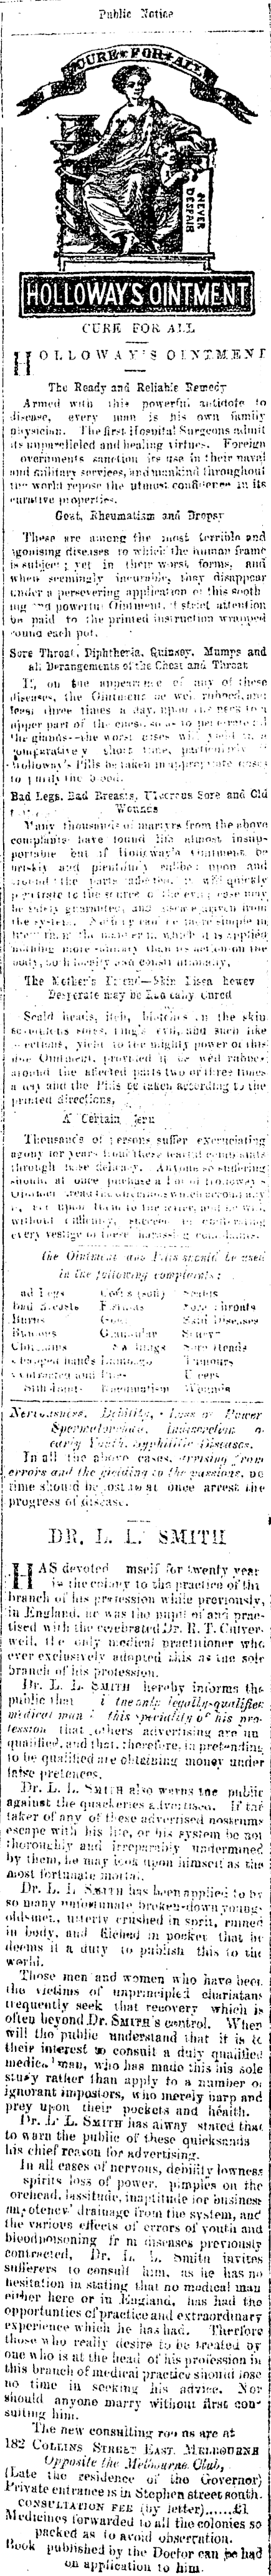 Public Notice
CURE FOR ALL
NEVER
DESPAIR
HOLLOWAY'S OINTMENT
CURE FOR ALL
HOLLOWAY'S OINTMENT
The Ready and Reliable Remedy
Armed with this powerful antidote to
disease, every man is his own family
physician. The first Hospital Surgeons admit
its unparalleled and healing virtues. Foreign
overnments sanction its use in their naval
and military services, and mankind throughout
the world repose the utmost confidence in its
curative properties.
Gout, Rheumatism and Dropsy
These are among the most terrible and
agonising diseases to which the human frame
is subject; yet in their worst forms, and
when seemingly incurable, they disappear
under a persevering application of this sooth
ing and powerful Ointment, if strict attention
be paid to the printed instruction wrapped
round each pot.
Sore Throat, Diphtheria, Quinsey, Mumps and
all Derangements of the Chest and Throat
If, on the appearance of any of these
diseases, the Ointment be well rubbed, at
least three times a day, upon the neck and
upper part of the chest, so as to penetrate
the glands—the worst cases will yield in a
comparatively short time, particularly if
Holloway's Pills be taken in appropriate doses
to purify the blood.
Bad Legs, Bad Breasts, Ulcerous Sore and Old
Wounds
Many thousands of martyrs from the above
complaints have found life almost insup-
portable but if Holloway's Ointment be
briskly and plentifully rubbed upon and
around the parts affected, it will quickly
penetrate to the source of the evil
nothing more
body, both locally and constitutionally,
The Mother's Friend—Skin Disea howev
Desperate may be Radically Cured
Scald heads, itch, blotches on the skin
scrofulous sores, king's evil, and such like
affections, yield to the mighty power of this
fine Ointment, provided it be well rubbed
around the affected parts two or three times
a day and the Pills be taken according to the
printed directions,
A Certain
Thousands of persons suffer excruciating
agony for years from these fearful complaints
through false delicacy. Anyone so suffering
should at once purchase a Pot of Holloway's
Ointment
without difficulty,
every vestige of these harassing complaints.
the Ointment and Pills should be used
in the following complaints:
ad Legs
Bad Breasts
Fistulas
Sore throats
Burns
Gout
Skin Diseases
Bunions
Glandular
Scurvy
Chilblains
Swellings
Sore Heads
Chapped hands
Lumbago
Tumours
Contracted and
Piles
Ulcers
Stiff Joints
Rheumatism
Wounds
Nervousness, Debility, Loss of Power
Spermatorrhœa, Indiscretion o
early Youth, Syphilitic Diseases.
In all the above cases, arising from
errors and the yielding to the passions, no
time should be lost to at once arrest the
progress of disease.
DR. L. L. SMITH
HAS devoted mself for twenty year
in the colony to the practice of this
branch of his profession while previously,
in England, he was the pupil of and prac-
tised with the celebrated Dr. R. T. Culver-
well, the only medical practitioner who
ever exclusively adopted this as the sole
branch of his profession.
Dr. L. L. SMITH hereby informs the
public that i the only legally-qualified
medical man this speciality of his pro-
fession that others advertising are un
qualified, and that, therefore, in pretending
to be qualified are obtaining money under
false pretences.
Dr. L. L. SMITH also warns the public
against the quackeries advertised. If the
taker of any of these advertised nostrums
escape with his life, or his system be not
thoroughly and irreparably undermined
by them, he may look upon himself as the
most fortunate mortal.
Dr. L. L. SMITH has been applied to by
so many unfortunate broken-down young-
old men, utterly crushed in spirit, ruined
in body, and filched in pocket that he
deems it a duty to publish this to the
world.
Those men and women who have been
the victims of unprincipled charlatans
frequently seek that recovery which is
often beyond Dr. SMITH's control. When
will the public understand that it is to
their interest to consult a duly qualified
medical man, who has made this his sole
study rather than apply to a number of
ignorant impostors, who merely harp and
prey upon their pockets and health.
Dr. L. L. SMITH has alway stated that
to warn the public of these quicksands
his chief reason for advertising.
In all cases of nervous, debility lowness
spirits loss of power, pimples on the
orehead, lassitude, inaptitude for business
impotency drainage from the system, and
the various effects of errors of youth and
bloodpoisoning fr m diseases previously
contracted, Dr. L. L. Smith invites
sufferers to consult him, as he has no
hesitation in stating that no medical man
either here or in England, has had the
opportunities of practice and extraordinary
experience which he has had. Therfore
those who really desire to be treated by
one who is at the head of his profession in
this branch of medical practice should lose
no time in seeking his advice. Nor
should anyone marry without first con-
sulting him.
The new consulting rooms are at
182 COLLINS STREET EAST, MELBOURNE
Opposite the Melbourne Club,
(Late the residence of the Governor)
Private entrance is in Stephen street south.
CONSULTATION FEE (by letter)......£1
Medicines forwarded to all the colonies so
packed as to avoid observation.
Book published by the Doctor can be had
on application to him.